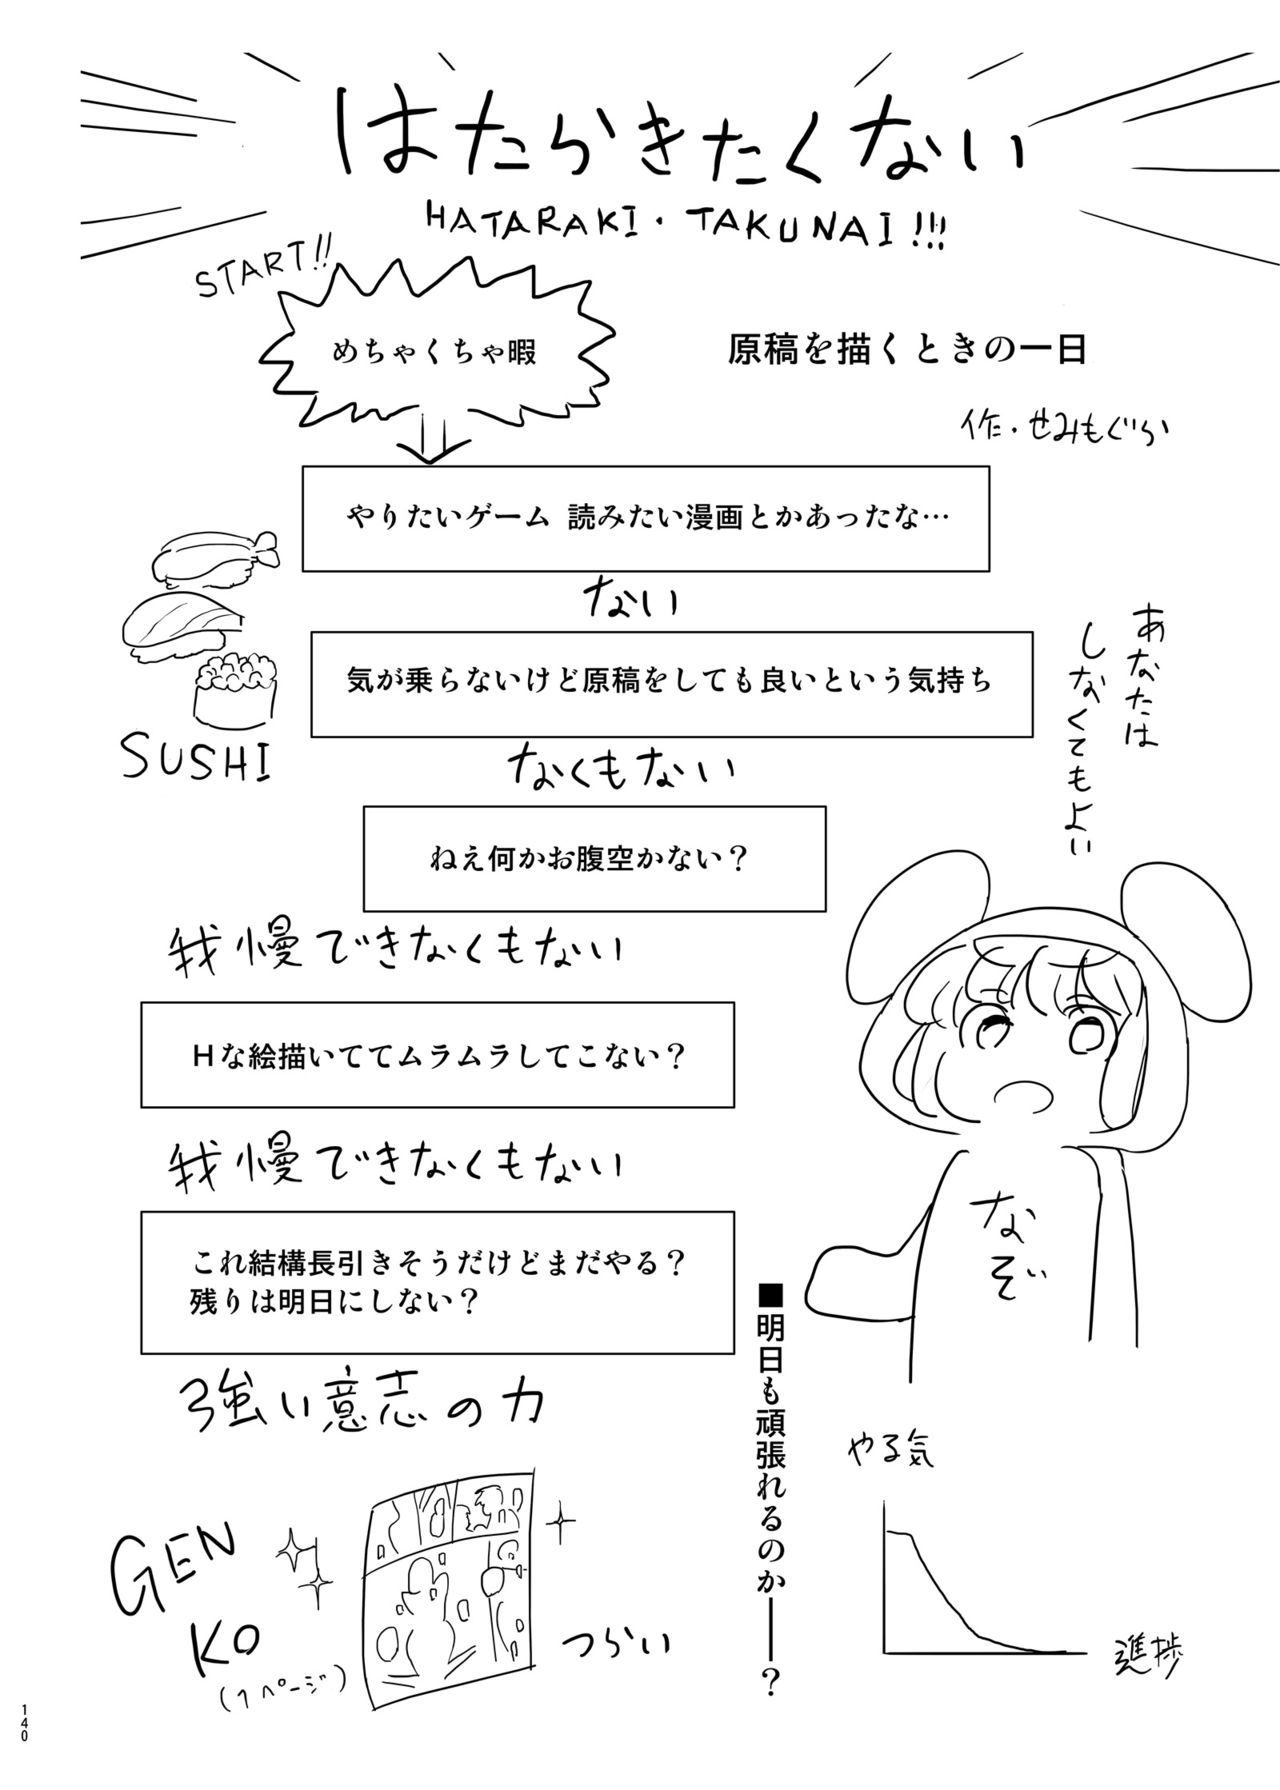 はたらきたくない
HATARAKI・TAKUNAI!!!
START!!
めちゃくちゃ暇
原稿を描くときの一日
作・せみもぐら
やりたいゲーム 読みたい漫画とかあったな…
ない
気が乗らないけど原稿をしても良いという気持ち
SUSHI
なくもない
あなたは
しなくてもよい
ねえ何かお腹空かない？
我慢できなくもない
Hな絵描いててムラムラしてこない？
我慢できなくもない
なぞ
これ結構長引きそうだけどまだやる？
残りは明日にしない？
強い意志の力
■明日も頑張れるのか――？
やる気
進捗
GEN
KO
(1ページ)
つらい
140